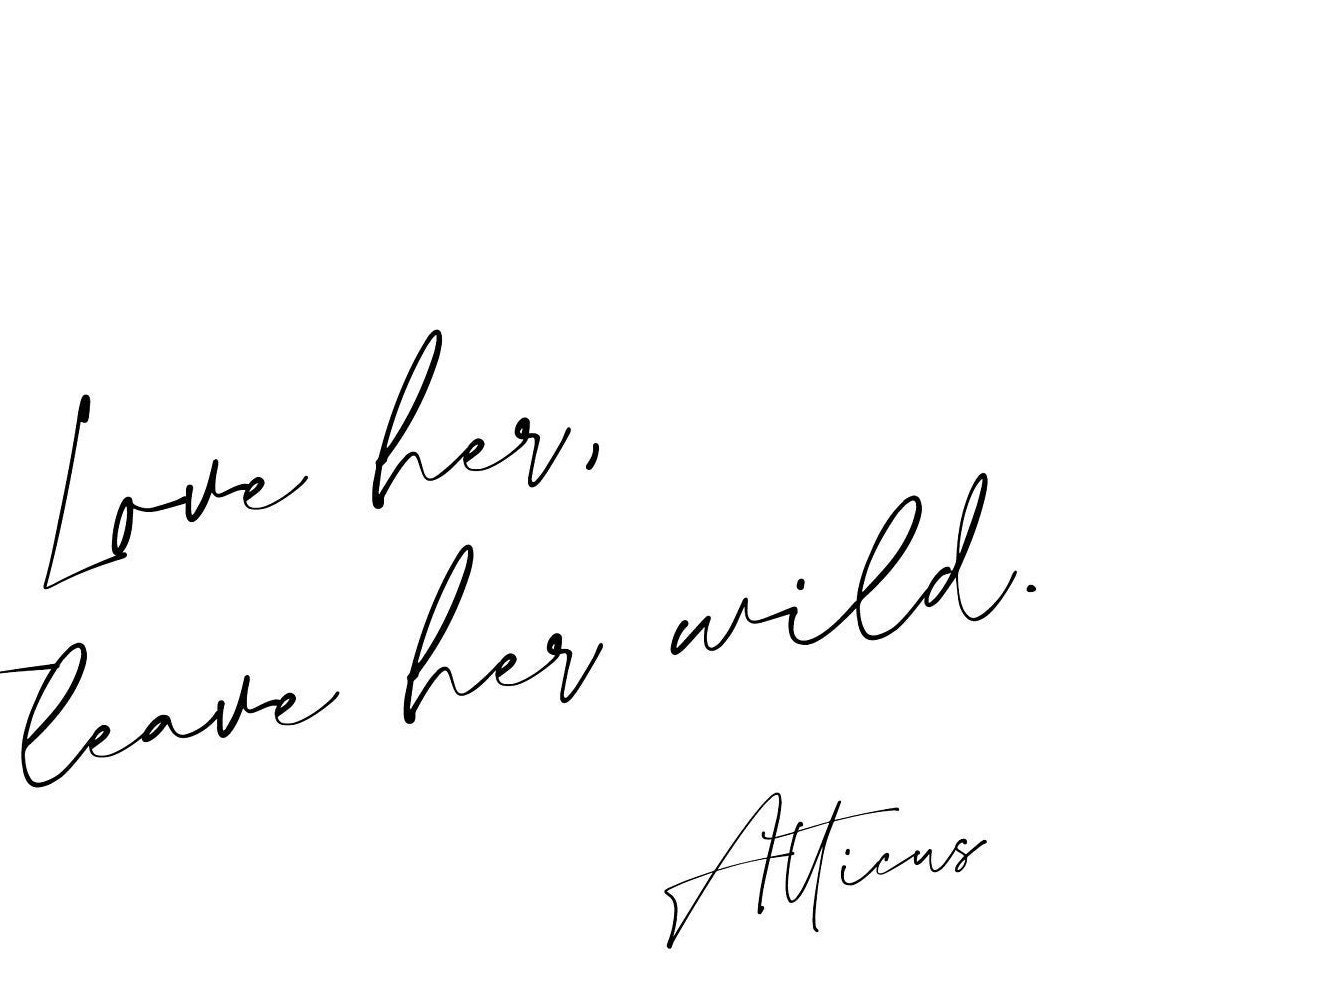 Love her,
leave her wild.
Atticus